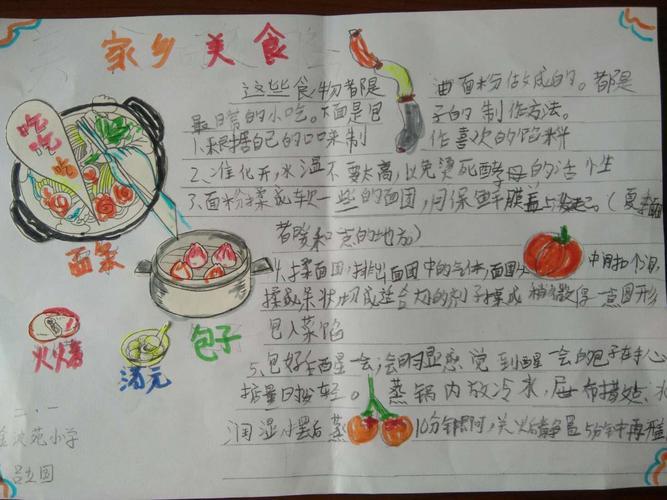 家乡美食
吃吃吃
面条
火火烧
汤元
包子
这些食物都是 由面粉做成的。都是
最日常的小吃。下面是包 子的制作方法。
1.根据自己的口味制 作喜欢的馅料
2.准化开,水温不要太高,以免烫死酵母的活性
3.面粉揉成软一些的面团,用保鲜膜盖与发起。(夏季面
都暖和 的地方)
4.揉面团,排出面团中的气体,面团 中间扣个洞,
揉成条状,切成适合大的剂子揉成 稍微厚一点圆形
包入菜馅
5.包好后醒一会,会明显感觉到醒一会的包子在手心
掂量日轻。蒸锅内放冷水,屉布 水
润湿 后蒸 10分钟 关火后静置5分钟再
二.一
波苑小学